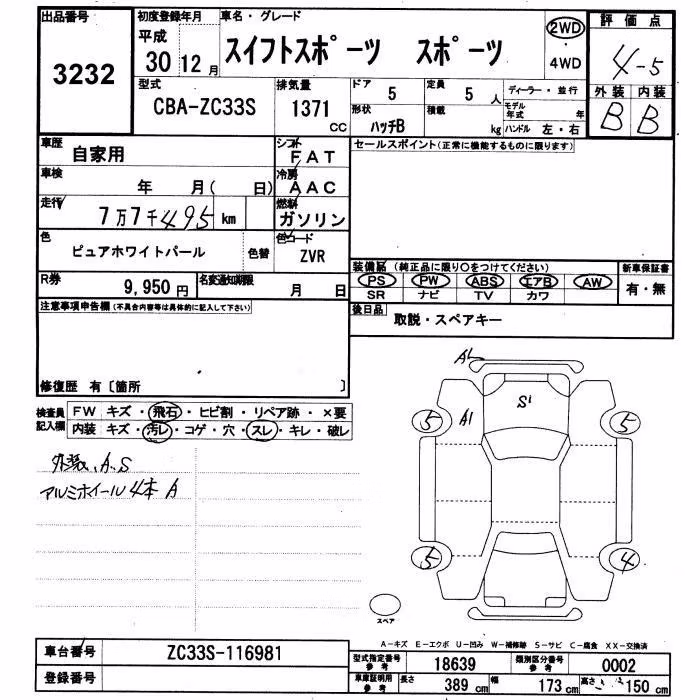 出品番号
3232
初度登録年月
平成
30 12 月
車名・グレード
スイフトスポーツ スポーツ
2WD
・
4WD
評価点
4-5
外装 内装
B B
型式
CBA-ZC33S
排気量
1371
CC
ドア
5
定員
5 人
形状
ハッチB
積載
kg
ディーラー・並行
モデル年式 年
ハンドル 左・右
車歴
自家用
シフト
FAT
車検
年 月( 日)
冷房
AAC
走行
7万7千495 km
燃料
ガソリン
色
ピュアホワイトパール
色替
色コード
ZVR
R券
9,950 円
名変通知期限
月 日
セールスポイント(正常に機能するものに限ります)
装備品 (純正品に限り○をつけてください)
PS PW ABS エアB AW
SR ナビ TV カワ
新車保証書
有・無
後日品
取説・スペアキー
注意事項申告欄(不具合内容等は具体的に記入して下さい)
修復歴 有〔箇所 〕
検査員記入欄
FW キズ・飛石・ヒビ割・リペア跡・×要
内装 キズ・汚レ・コゲ・穴・スレ・キレ・破レ
外装、A、S
アルミホイール4本 A
A
A1
S1
5
5
5
4
スペア
A-キズ E-エクボ U-凹み W-補修跡 S-サビ C-腐食 XX-交換済
車台番号
ZC33S-116981
登録番号
型式指定番号
参考
18639
類別区分番号
参考
0002
車庫証明用
参考
長さ
389 cm
幅
173 cm
高さ
150 cm